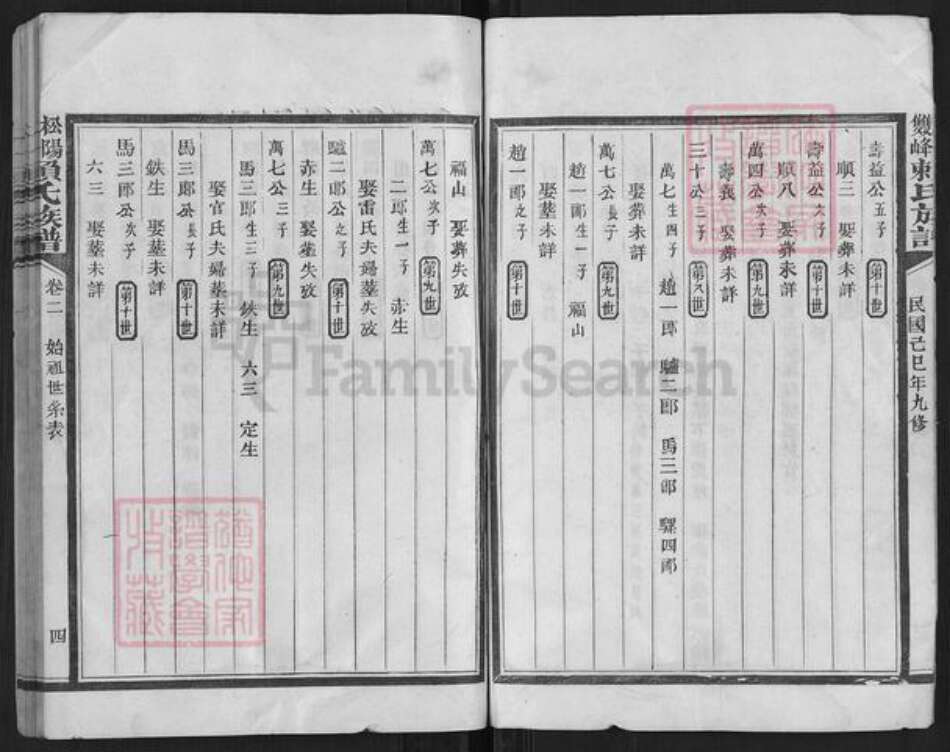 雙峰賴氏族譜
民國己巳年九修
壽益公五子 第十世
順三 娶葬未詳
壽益公六子 第十世
順八 娶葬未詳
萬四公次子 第九世
壽義 娶葬未詳
三十公三子 第八世
萬七生四子 趙一郎 驢二郎 馬三郎 騾四郎
娶葬未詳
萬七公長子 第九世
趙一郎生一子 福山
娶塟未詳
趙一郎之子 第十世
福山 娶葬失攷
萬七公次子 第九世
二郎生一子 赤生
娶雷氏夫婦塟失攷
驢二郎公之子 第十世
赤生 娶塟失攷
萬七公三子 第九世
馬三郎生三子 鉄生 六三 定生
娶官氏夫婦塟未詳
馬三郎公長子 第十世
鉄生 娶塟未詳
馬三郎公次子 第十世
六三 娶塟未詳
松陽賴氏族譜
卷二 始祖世系表
四
FamilySearch